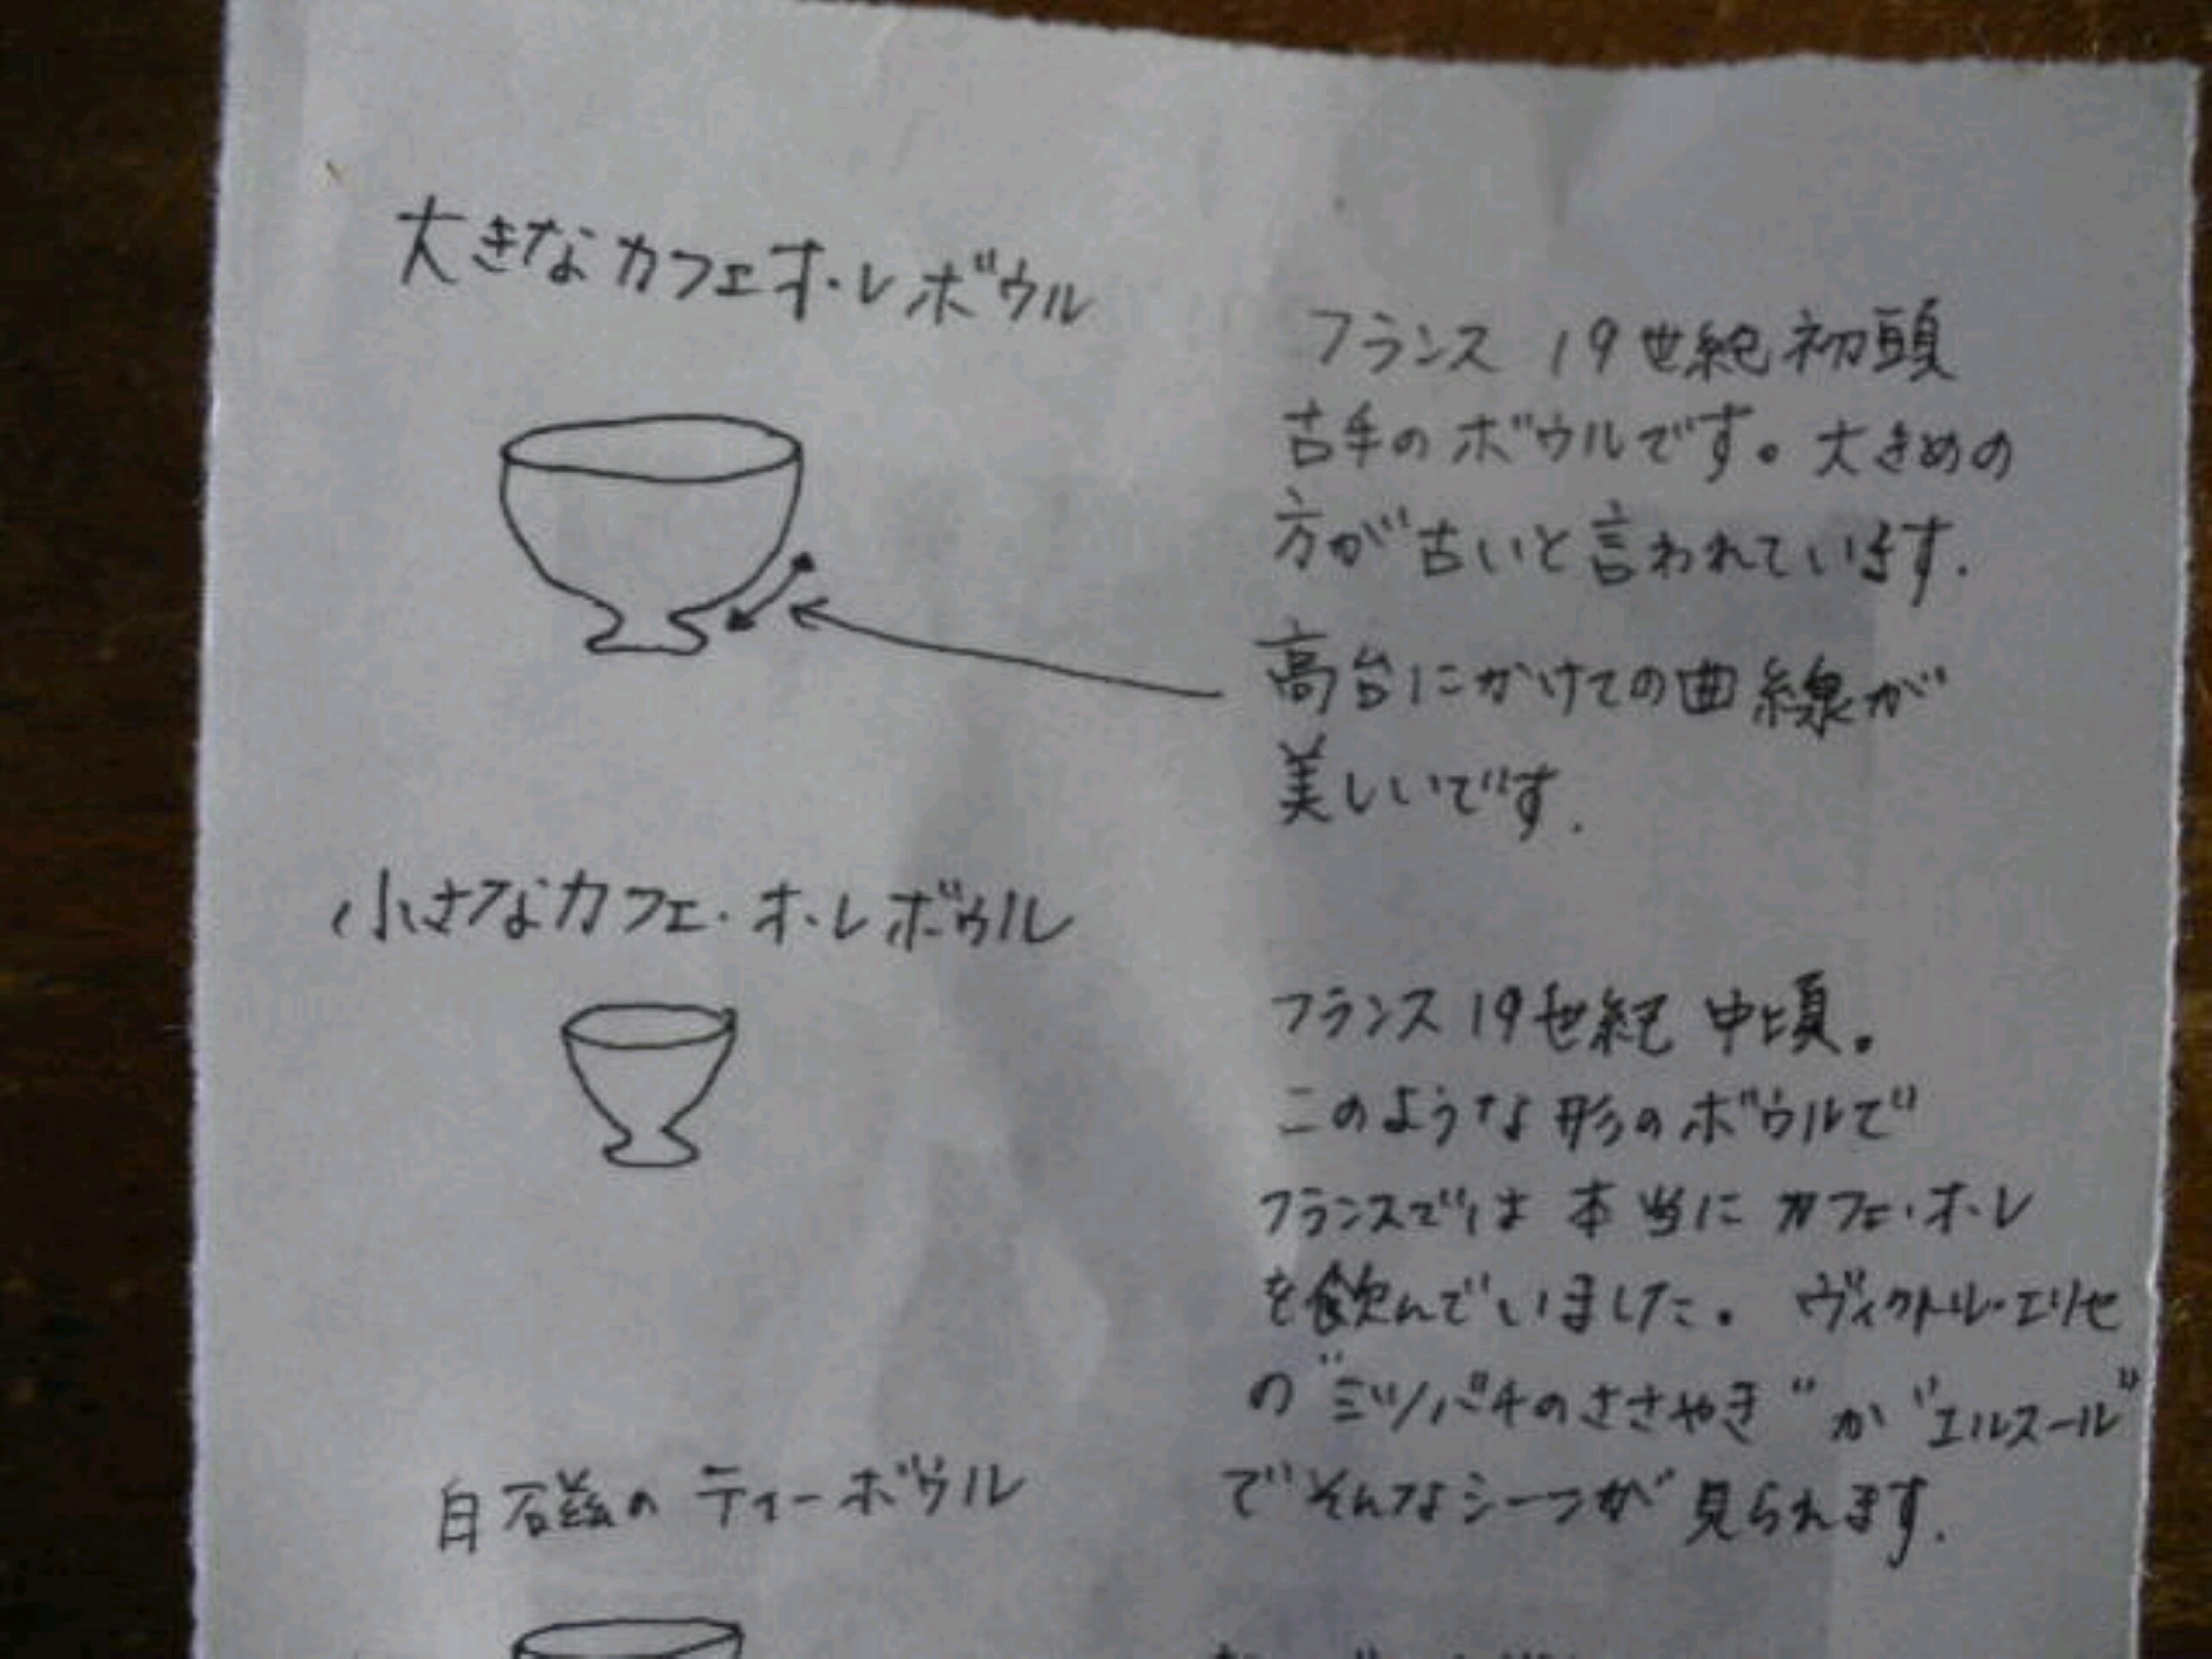 大きなカフェオ・レボウル
フランス 19世紀初頭
古手のボウルです。大きめの
方が古いと言われています.
高台にかけての曲線が
美しいです.
小さなカフェ・オ・レボウル
フランス 19世紀 中頃。
このような形のボウルで
フランスでは 本当に カフェ・オ・レ
を飲んでいました。 ヴィクトル・エリセ
の"ミツバチのささやき"か"エルスール"
でそんなシーンが 見られます.
白磁の ティーボウル